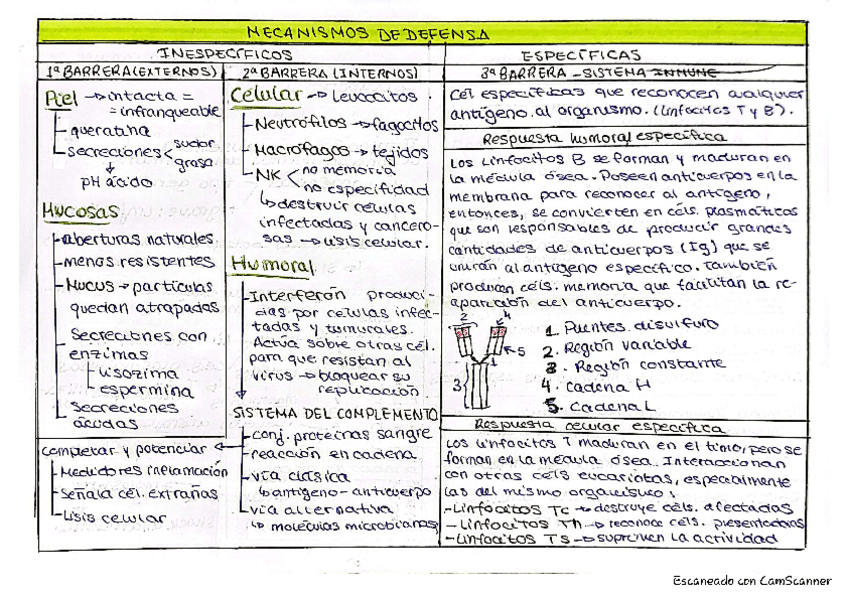 MECANISMOS DE DEFENSA
INESPECÍFICOS
ESPECÍFICAS
1ª BARRERA (EXTERNOS)
2ª BARRERA (INTERNOS)
3ª BARRERA - SISTEMA INMUNE
Piel → intacta =
= infranqueable
queratina
secreciones < sudor
grasa
pH ácido
Mucosas
aberturas naturales
menos resistentes
Mucus → partículas
quedan atrapadas
Secreciones con
enzimas
lisozima
espermina
Secreciones
ácidas
completar y potenciar
Mediadores inflamación
Señala cél. extrañas
Lisis celular
Celular → leucocitos
Neutrófilos → fagocitos
Macrófagos → tejidos
NK < no memoria
no especifidad
↳ destruir células
infectadas y cancero-
sas → lisis celular.
Humoral
Interferón produci-
das por células infec-
tadas y tumurales.
Actúa sobre otras cél.
para que resistan al
virus → bloquear su
replicación
SISTEMA DEL COMPLEMENTO
conj. proteínas sangre
reacción en cadena
vía clásica
↳ antígeno - anticuerpo
vía alternativa
↳ moléculas microbianas
Cél específicas que reconocen cualquier
antígeno al organismo. (linfocitos T y B).
Respuesta humoral específica
Los linfocitos B se forman y maduran en
la médula ósea. Poseen anticuerpos en la
membrana para reconocer al antígeno,
entonces, se convierten en céls. plasmáticas
que son responsables de producir grandes
cantidades de anticuerpos (Ig) que se
unirán al antígeno específico. También
producen céls. memoria que facilitan la re-
aparición del anticuerpo.
2
4
5
1
3
1. Puentes disulfuro
2. Región variable
3. Región constante
4. Cadena H
5. Cadena L
Respuesta celular específica
Los linfocitos T maduran en el timo, pero se
forman en la médula ósea. Interaccionan
con otras céls eucariotas, especialmente
las del mismo organismo:
- Linfocitos Tc → destruye céls. afectadas
- Linfocitos Th → reconoce céls. presentadoras
- Linfocitos Ts → suprimen la actividad
Escaneado con CamScanner